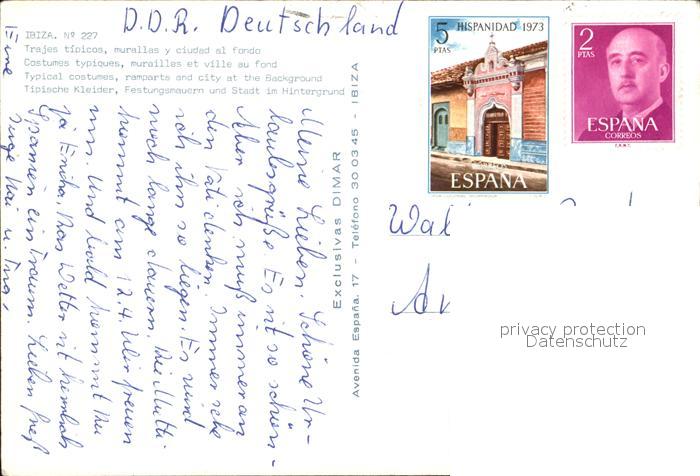 D.D.R. Deutschland
IBIZA. Nº 227
Trajes típicos, murallas y ciudad al fondo
Costumes typiques, murailles et ville au fond
Typical costumes, ramparts and city at the Background
Tipische Kleider, Festungsmauern und Stadt im Hintergrund
5 PTAS
HISPANIDAD 1973
CORREOS
ESPAÑA
2 PTAS
ESPAÑA
CORREOS
F.N.M.T.
Exclusivas DIMAR
Avenida España, 17 - Teléfono 30 03 45 - IBIZA
Meine Lieben. Schöne Ur-
laubsgrüße. Es ist so schön-
Aber ich muß immer an
den Vati denken. Immer sehe
ich ihn so liegen. Es wird
noch lange dauern. Die Mutti
kommt am 12.4. Wir freuen
uns. Und bald kommt Du
ja Das Wetter ist herrlich
Spanien ein Traum. Lieben Gruß
Eure
Wal
privacy protection
Datenschutz